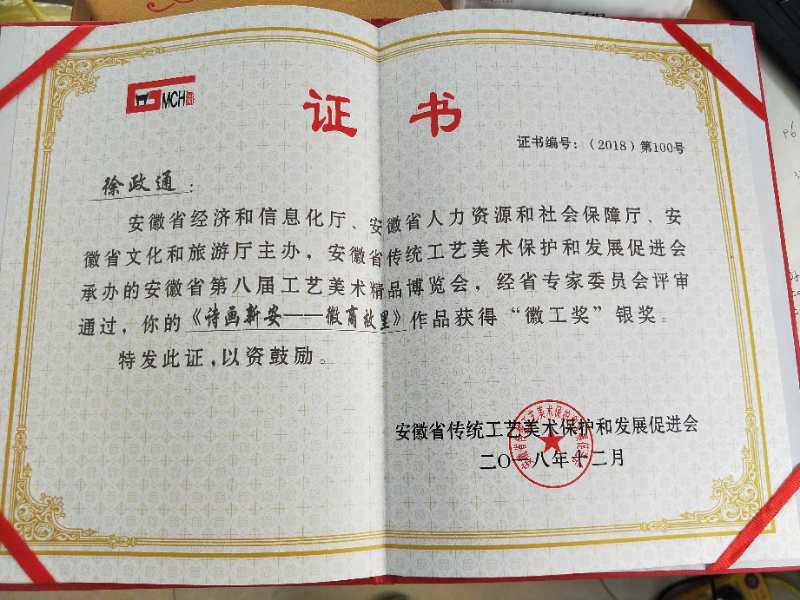 MCH
证书
证书编号:(2018)第100号
徐政通:
安徽省经济和信息化厅、安徽省人力资源和社会保障厅、安
徽省文化和旅游厅主办,安徽省传统工艺美术保护和发展促进会
承办的安徽省第八届工艺美术精品博览会,经省专家委员会评审
通过,你的《诗画新安——徽商故里》作品获得“徽工奖”银奖。
特发此证,以资鼓励。
安徽省传统工艺美术保护和发展促进会
二〇一八年十二月
安徽省传统工艺美术保护和发展促进会